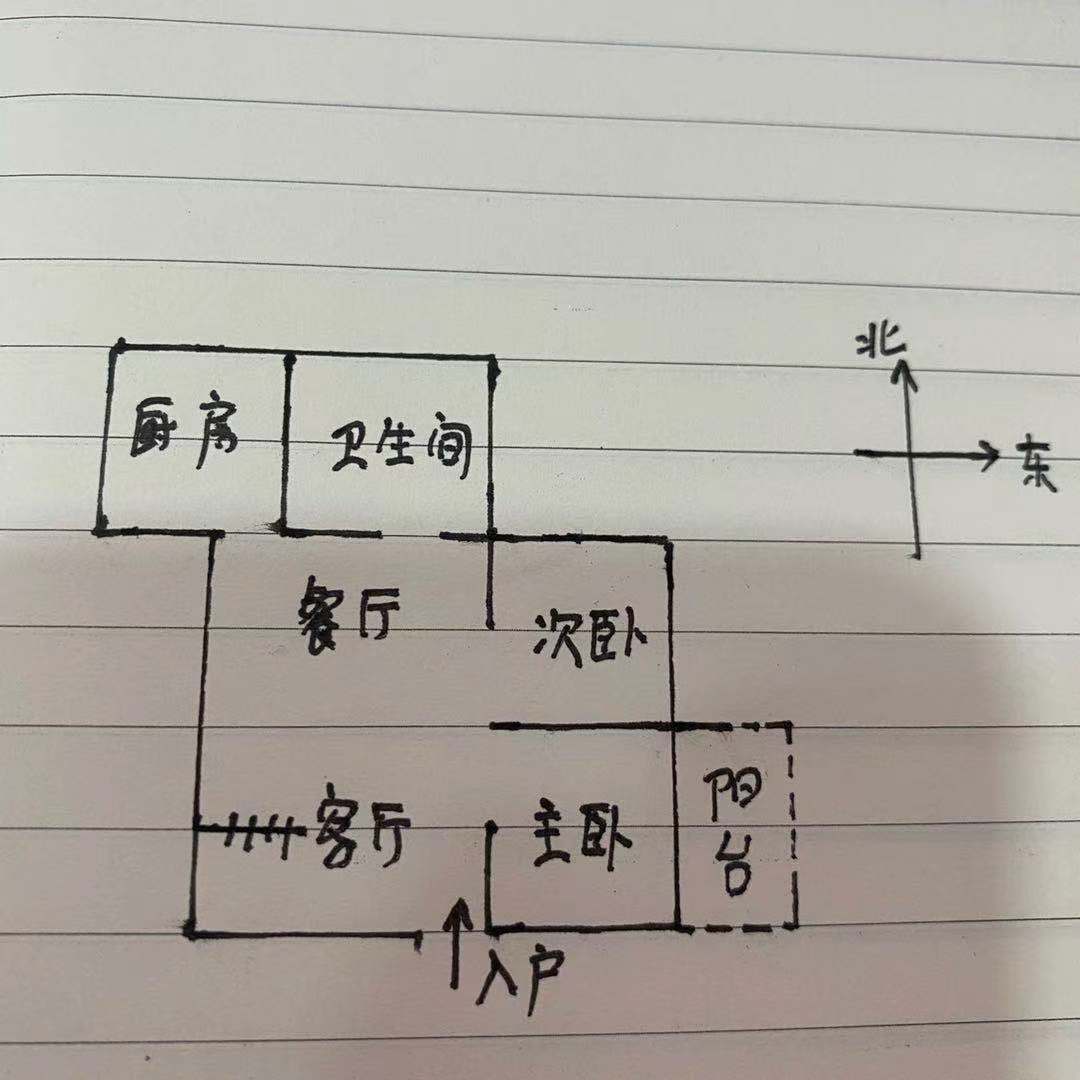 北
东
厨房
卫生间
餐厅
次卧
阳台
客厅
主卧
入户